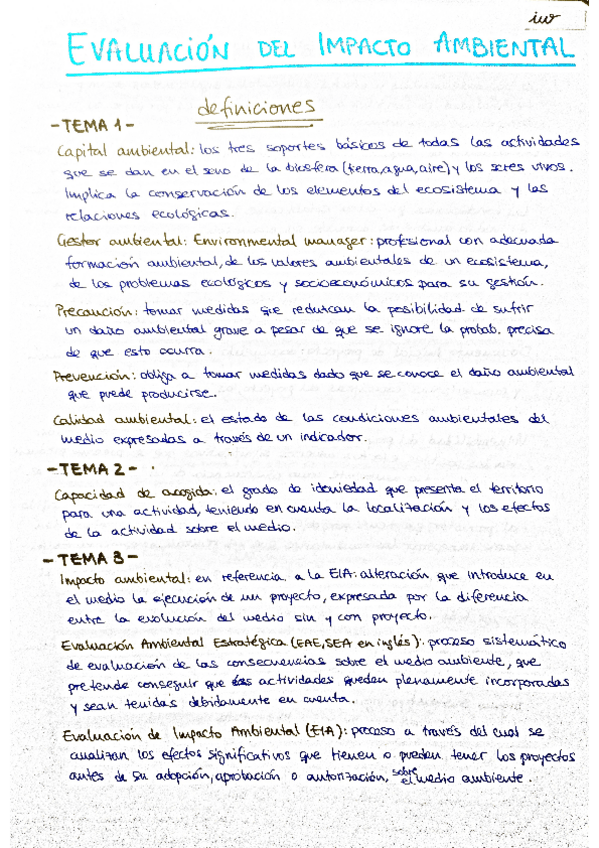 iw
EVALUACIÓN DEL IMPACTO AMBIENTAL
definiciones
-TEMA 1-
Capital ambiental: los tres soportes básicos de todas las actividades
que se dan en el seno de la biosfera (tierra, agua, aire) y los seres vivos.
Implica la conservación de los elementos del ecosistema y las
relaciones ecológicas.
Gestor ambiental: Environmental manager: profesional con adecuada
formación ambiental, de los valores ambientales de un ecosistema,
de los problemas ecológicos y socioeconómicos para su gestión.
Precaución: tomar medidas que reduzcan la posibilidad de sufrir
un daño ambiental grave a pesar de que se ignore la probab. precisa
de que esto ocurra.
Prevención: obliga a tomar medidas dado que se conoce el daño ambiental
que puede producirse.
Calidad ambiental: el estado de las condiciones ambientales del
medio expresadas a través de un indicador.
-TEMA 2-
Capacidad de acogida: el grado de idoniedad que presenta el territorio
para una actividad, teniendo en cuenta la localización y los efectos
de la actividad sobre el medio.
-TEMA 3-
Impacto ambiental: en referencia a la EIA: alteración que introduce en
el medio la ejecución de un proyecto, expresada por la diferencia
entre la evolución del medio sin y con proyecto.
Evaluación Ambiental Estratégica (EAE, SEA en inglés): proceso sistemático
de evaluación de las consecuencias sobre el medio ambiente, que
pretende conseguir que actividades queden plenamente incorporadas
y sean tenidas debidamente en cuenta.
Evaluación de Impacto Ambiental (EIA): proceso a través del cual se
analizan los efectos significativos que tienen o pueden tener los proyectos
antes de su adopción, aprobación o autorización, sobre el medio ambiente.